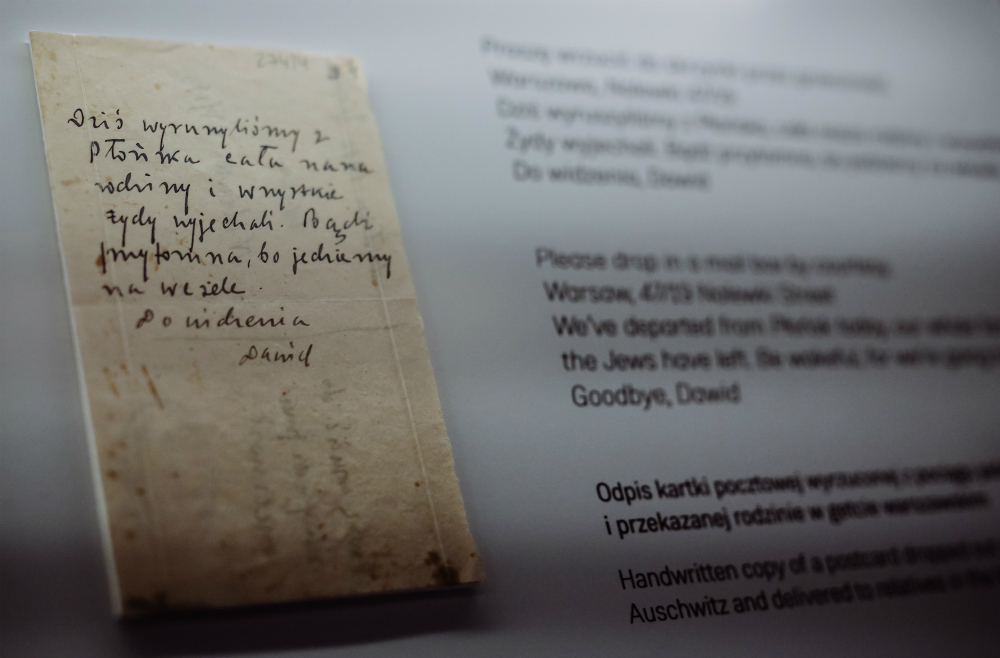 Dziś wyruszyliśmy z
Płońska cała nasza
rodziny i wszystkie
żydy wyjechali. Bądź
przytomna, bo jedziemy
na wesele.
Do widzenia
Dawid
Proszę wrzucić do skrzynki
Warszawa, Nalewki 47/19
Dziś wyruszyliśmy z Płońska, cała nasza
Żydy wyjechali. Bądź przytomna, bo jedziemy na wesele.
Do widzenia, Dawid
Please drop in a mail box by courtesy
Warsaw, 47/19 Nalewki Street
We've departed from Płońsk today, our whole
the Jews have left. Be wakeful, for we're going
Goodbye, Dawid
Odpis kartki pocztowej wyrzuconej z pociągu
i przekazanej rodzinie w getcie warszawskim
Handwritten copy of a postcard dropped
Auschwitz and delivered to relatives in the